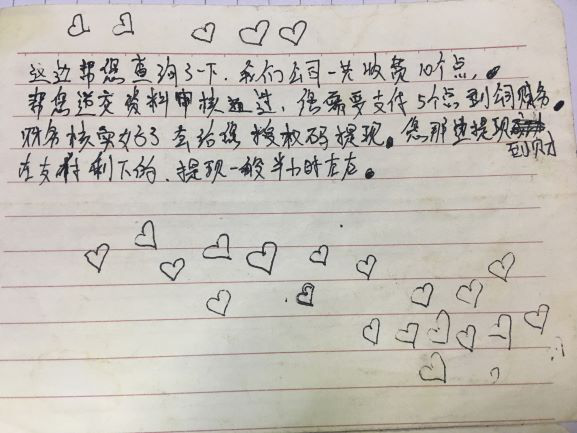 这边帮您查询了一下.我们公司一共收费10个点.
帮您递交资料审核通过,您需要支付5个点到公司财务.
财务核实好了 去给您授权码提现。您那边提现到账
在支付剩下的.提现一般半小时左右。